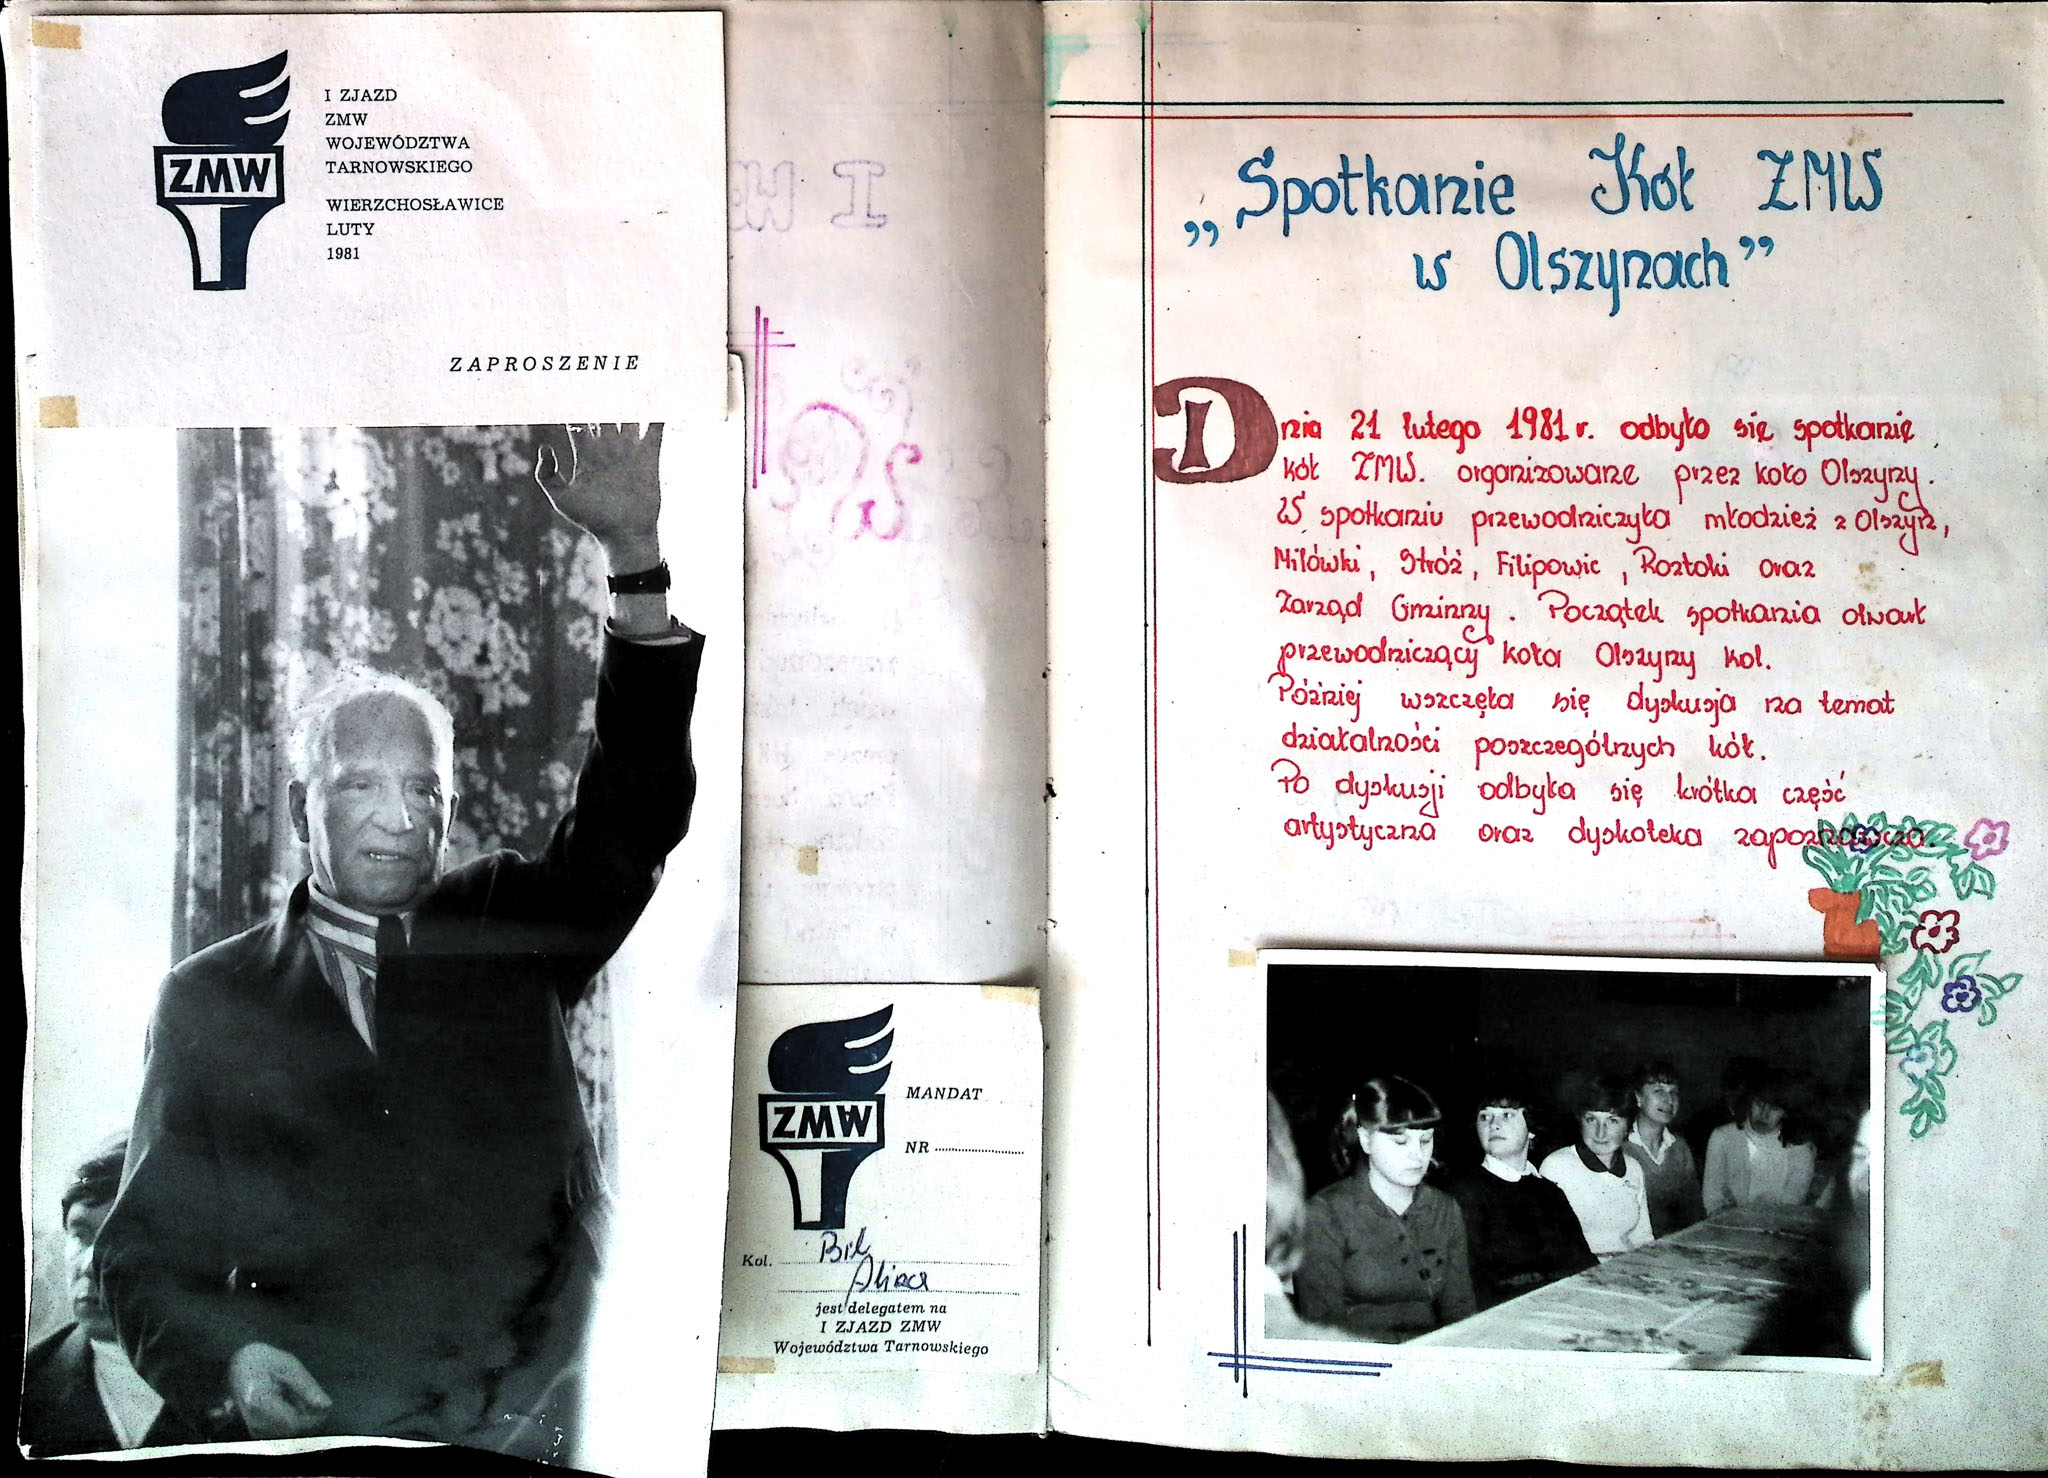 ZMW
I ZJAZD
ZMW
WOJEWÓDZTWA
TARNOWSKIEGO
WIERZCHOSŁAWICE
LUTY
1981
ZAPROSZENIE
ZMW
MANDAT
NR
Kol. Bił
Alicea
jest delegatem na
I ZJAZD ZMW
Województwa Tarnowskiego
„Spotkanie Kół ZMW
w Olszynach”
Dnia 21 lutego 1981 r. odbyło się spotkanie
kół ZMW. organizowane przez koło Olszyny.
W spotkaniu przewodniczyła młodzież z Olszyn,
Milówki, Stróż, Filipowic, Roztoki oraz
Zarząd Gminny. Początek spotkania otwarł
przewodniczący koła Olszyny kol.
Później wszczęła się dyskusja na temat
działalności poszczególnych kół.
Po dyskusji odbyła się krótka część
artystyczna oraz dyskoteka zapoznawcza.